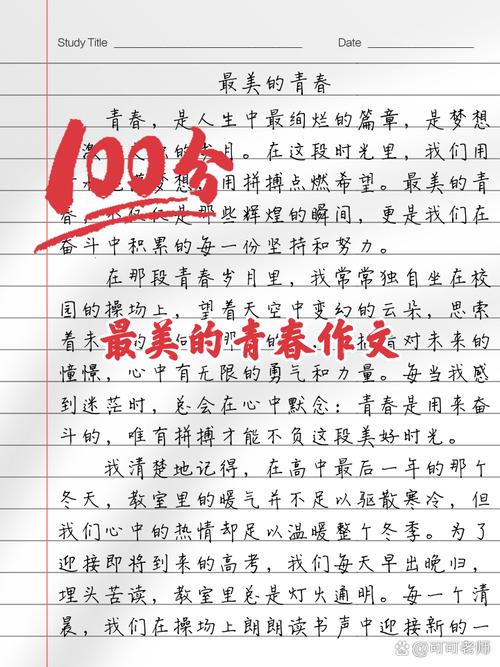 Study Title
Date
最美的青春
青春，是人生中最绚烂的篇章，是梦想
岁月。在这段时光里，我们用
梦想，用拼搏点燃希望。最美的青
那些辉煌的瞬间，更是我们在
奋斗中积累的每一份坚持和努力。
100分
在那段青春岁月里，我常常独自坐在校
园的操场上，望着天空中变幻的云朵，思索
着未
对未来的
最美的青春作文
憧憬，心中有无限的勇气和力量。每当我感
到迷茫时，总会在心中默念：青春是用来奋
斗的，唯有拼搏才能不负这段美好时光。
我清楚地记得，在高中最后一年的那个
冬天，教室里的暖气并不足以驱散寒冷，但
我们心中的热情却足以温暖整个冬季。为了
迎接即将到来的高考，我们每天早出晚归，
埋头苦读，教室里总是灯火通明。每一个清
晨，我们在操场上朗朗读书声中迎接新的一
@可可老师